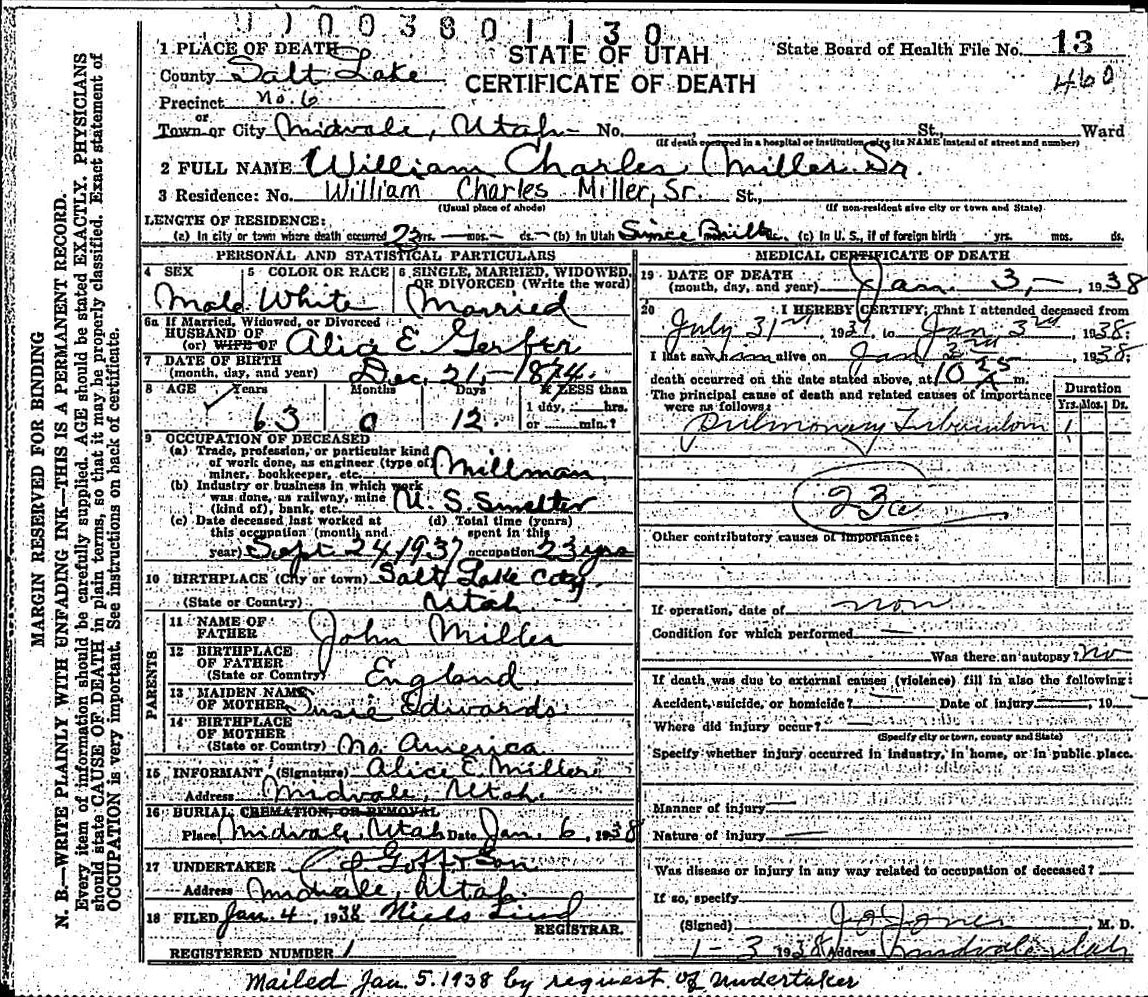 U J 0 0 3 8 0 1 1 3 0
STATE OF UTAH
CERTIFICATE OF DEATH
State Board of Health File No. 13
460
1 PLACE OF DEATH
County Salt Lake
Precinct No. 6
or
Town or City Midvale, Utah No. St., Ward
(If death occurred in a hospital or institution, give its NAME instead of street and number)
2 FULL NAME William Charles Miller Sr.
3 Residence: No. William Charles Miller, Sr. St.,
(Usual place of abode) (If non-resident give city or town and State)
LENGTH OF RESIDENCE:
(a) In city or town where death occurred 23 yrs. — mos. — ds. — (b) In Utah Since (c) In U. S., if of foreign birth yrs. mos. ds.
PERSONAL AND STATISTICAL PARTICULARS
4 SEX Male
5 COLOR OR RACE White
6 SINGLE, MARRIED, WIDOWED, OR DIVORCED (Write the word) Married
6a If Married, Widowed, or Divorced
HUSBAND OF
(or) WIFE OF Alice E
7 DATE OF BIRTH
(month, day, and year) Dec. 21, - 1874.
8 AGE Years 63 Months 0 Days 12 If LESS than
1 day, hrs.
or min.?
9 OCCUPATION OF DECEASED
(a) Trade, profession, or particular kind
of work done, as engineer (type of)
miner, bookkeeper, etc. Millman
(b) Industry or business in which work
was done, as railway, mine
(kind of), bank, etc. U. S. Smelter
(c) Date deceased last worked at
this occupation (month and
year) Sept 24 1937
(d) Total time (years)
spent in this
occupation 23 yrs
10 BIRTHPLACE (City or town) Salt Lake City
(State or Country) Utah
PARENTS
11 NAME OF
FATHER John Miller
12 BIRTHPLACE
OF FATHER
(State or Country) England
13 MAIDEN NAME
OF MOTHER Susie Edwards
14 BIRTHPLACE
OF MOTHER
(State or Country) No. America
15 INFORMANT (Signature) Alice E. Miller
Address Midvale, Utah.
16 BURIAL, CREMATION, OR REMOVAL
Place Midvale, Utah Date Jan. 6, 1938
17 UNDERTAKER Goff & Son
Address Midvale, Utah.
18 FILED Jan. 4, 1938 Niels Lind
REGISTRAR.
REGISTERED NUMBER 1
MEDICAL CERTIFICATE OF DEATH
19 DATE OF DEATH
(month, day, and year) Jan. 3, - 1938
20 I HEREBY CERTIFY; That I attended deceased from
July 31st, 1937, to Jan 3rd 1938;
I last saw him alive on Jan 1938;
death occurred on the date stated above, at 10 25 A m.
The principal cause of death and related causes of importance
were as follows:
Duration
Yrs. Mos. Ds.
Pulmonary Tuberculosis 1
23a
Other contributory causes of importance:
If operation, date of non
Condition for which performed —
Was there an autopsy? No
If death was due to external causes (violence) fill in also the following:
Accident, suicide, or homicide? — Date of injury —, 19
Where did injury occur? —
(Specify city or town, county and State)
Specify whether injury occurred in industry, in home, or in public place.
Manner of injury —
Nature of injury —
Was disease or injury in any way related to occupation of deceased?
If so, specify
(Signed) Jones M. D.
1 - 3 1938 Address Midvale Utah
Mailed Jan. 5. 1938 by request of Undertaker
MARGIN RESERVED FOR BINDING
N. B.—WRITE PLAINLY WITH UNFADING INK—THIS IS A PERMANENT RECORD.
Every item of information should be carefully supplied. AGE should be stated EXACTLY. PHYSICIANS
should state CAUSE OF DEATH in plain terms, so that it may be properly classified. Exact statement of
OCCUPATION is very important. See instructions on back of certificate.